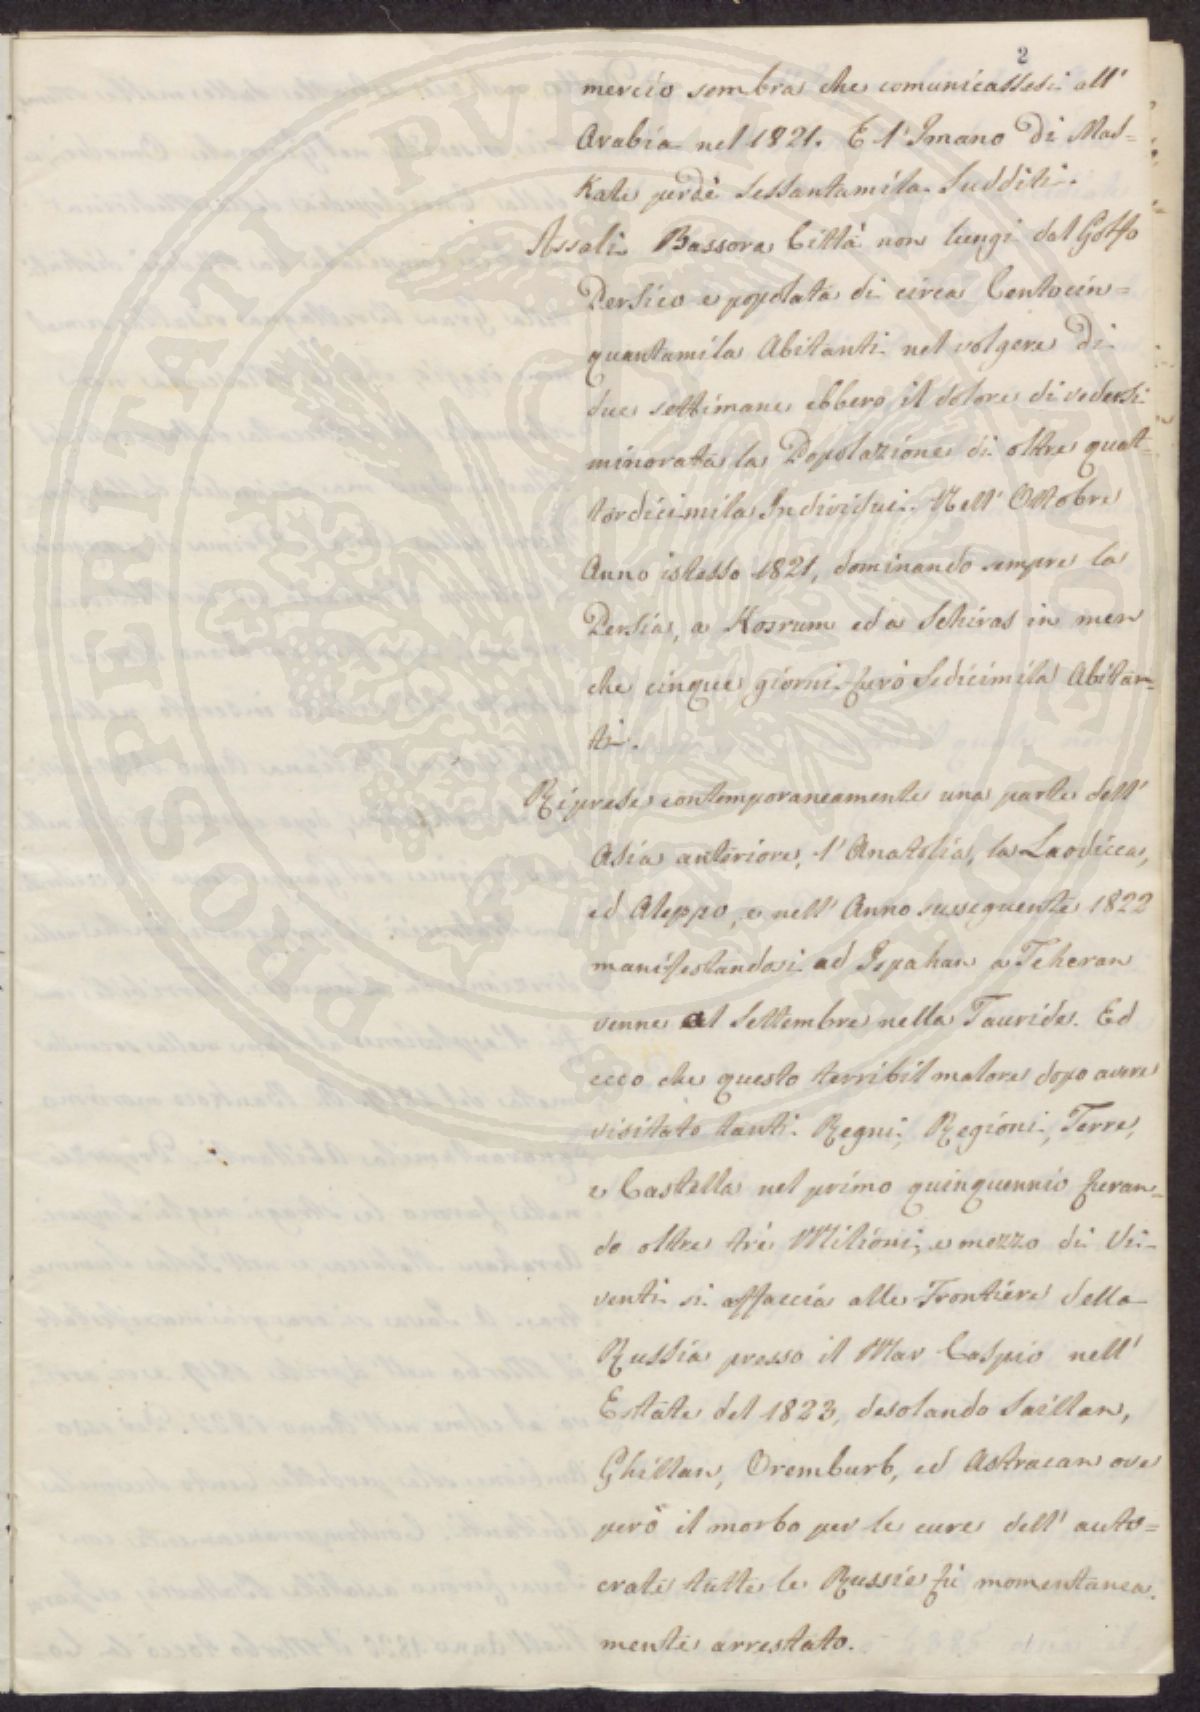 2
mercio sembra che comunicassesi all'
Arabia nel 1821. E l'Imano di Mas=
Kate perdè sessantamila Sudditi.
Assalì Bassora Città non lungi dal Golfo
Persico e popolata di circa Centocin=
quantamila Abitanti nel volgere di
due settimane ebbero il dolore di vedersi
minorata la Popolazione di oltre quat=
tordicimila Individui. Nell' Ottobre
Anno istesso 1821, dominando sempre la
Persia, a Kosrum ed a Schiras in men
che cinque giorni furò Sedicimila Abitan=
ti.
Riprese contemporaneamente una parte dell'
Asia anteriore, l'Anatolia, la Laodicea,
ed Aleppo, e nell' Anno susseguente 1822
manifestandosi ad Ispahan a Teheran
venne al Settembre nella Tauride. Ed
ecco che questo terribil malore dopo avere
visitato tanti Regni, Regioni, Terre,
e Castella nel primo quinquennio furan=
do oltre trè Milioni, e mezzo di Vi=
venti si affaccia alle Frontiere della
Russia presso il Mar Caspio nell'
Estate del 1823, desolando Saillan,
Ghillan, Oremburb, ed Astracan ove
però il morbo per le cure dell' auto=
crate tutte le Russie fù momentanea
mente arrestato.
PROSPERITATI PUBLICAE